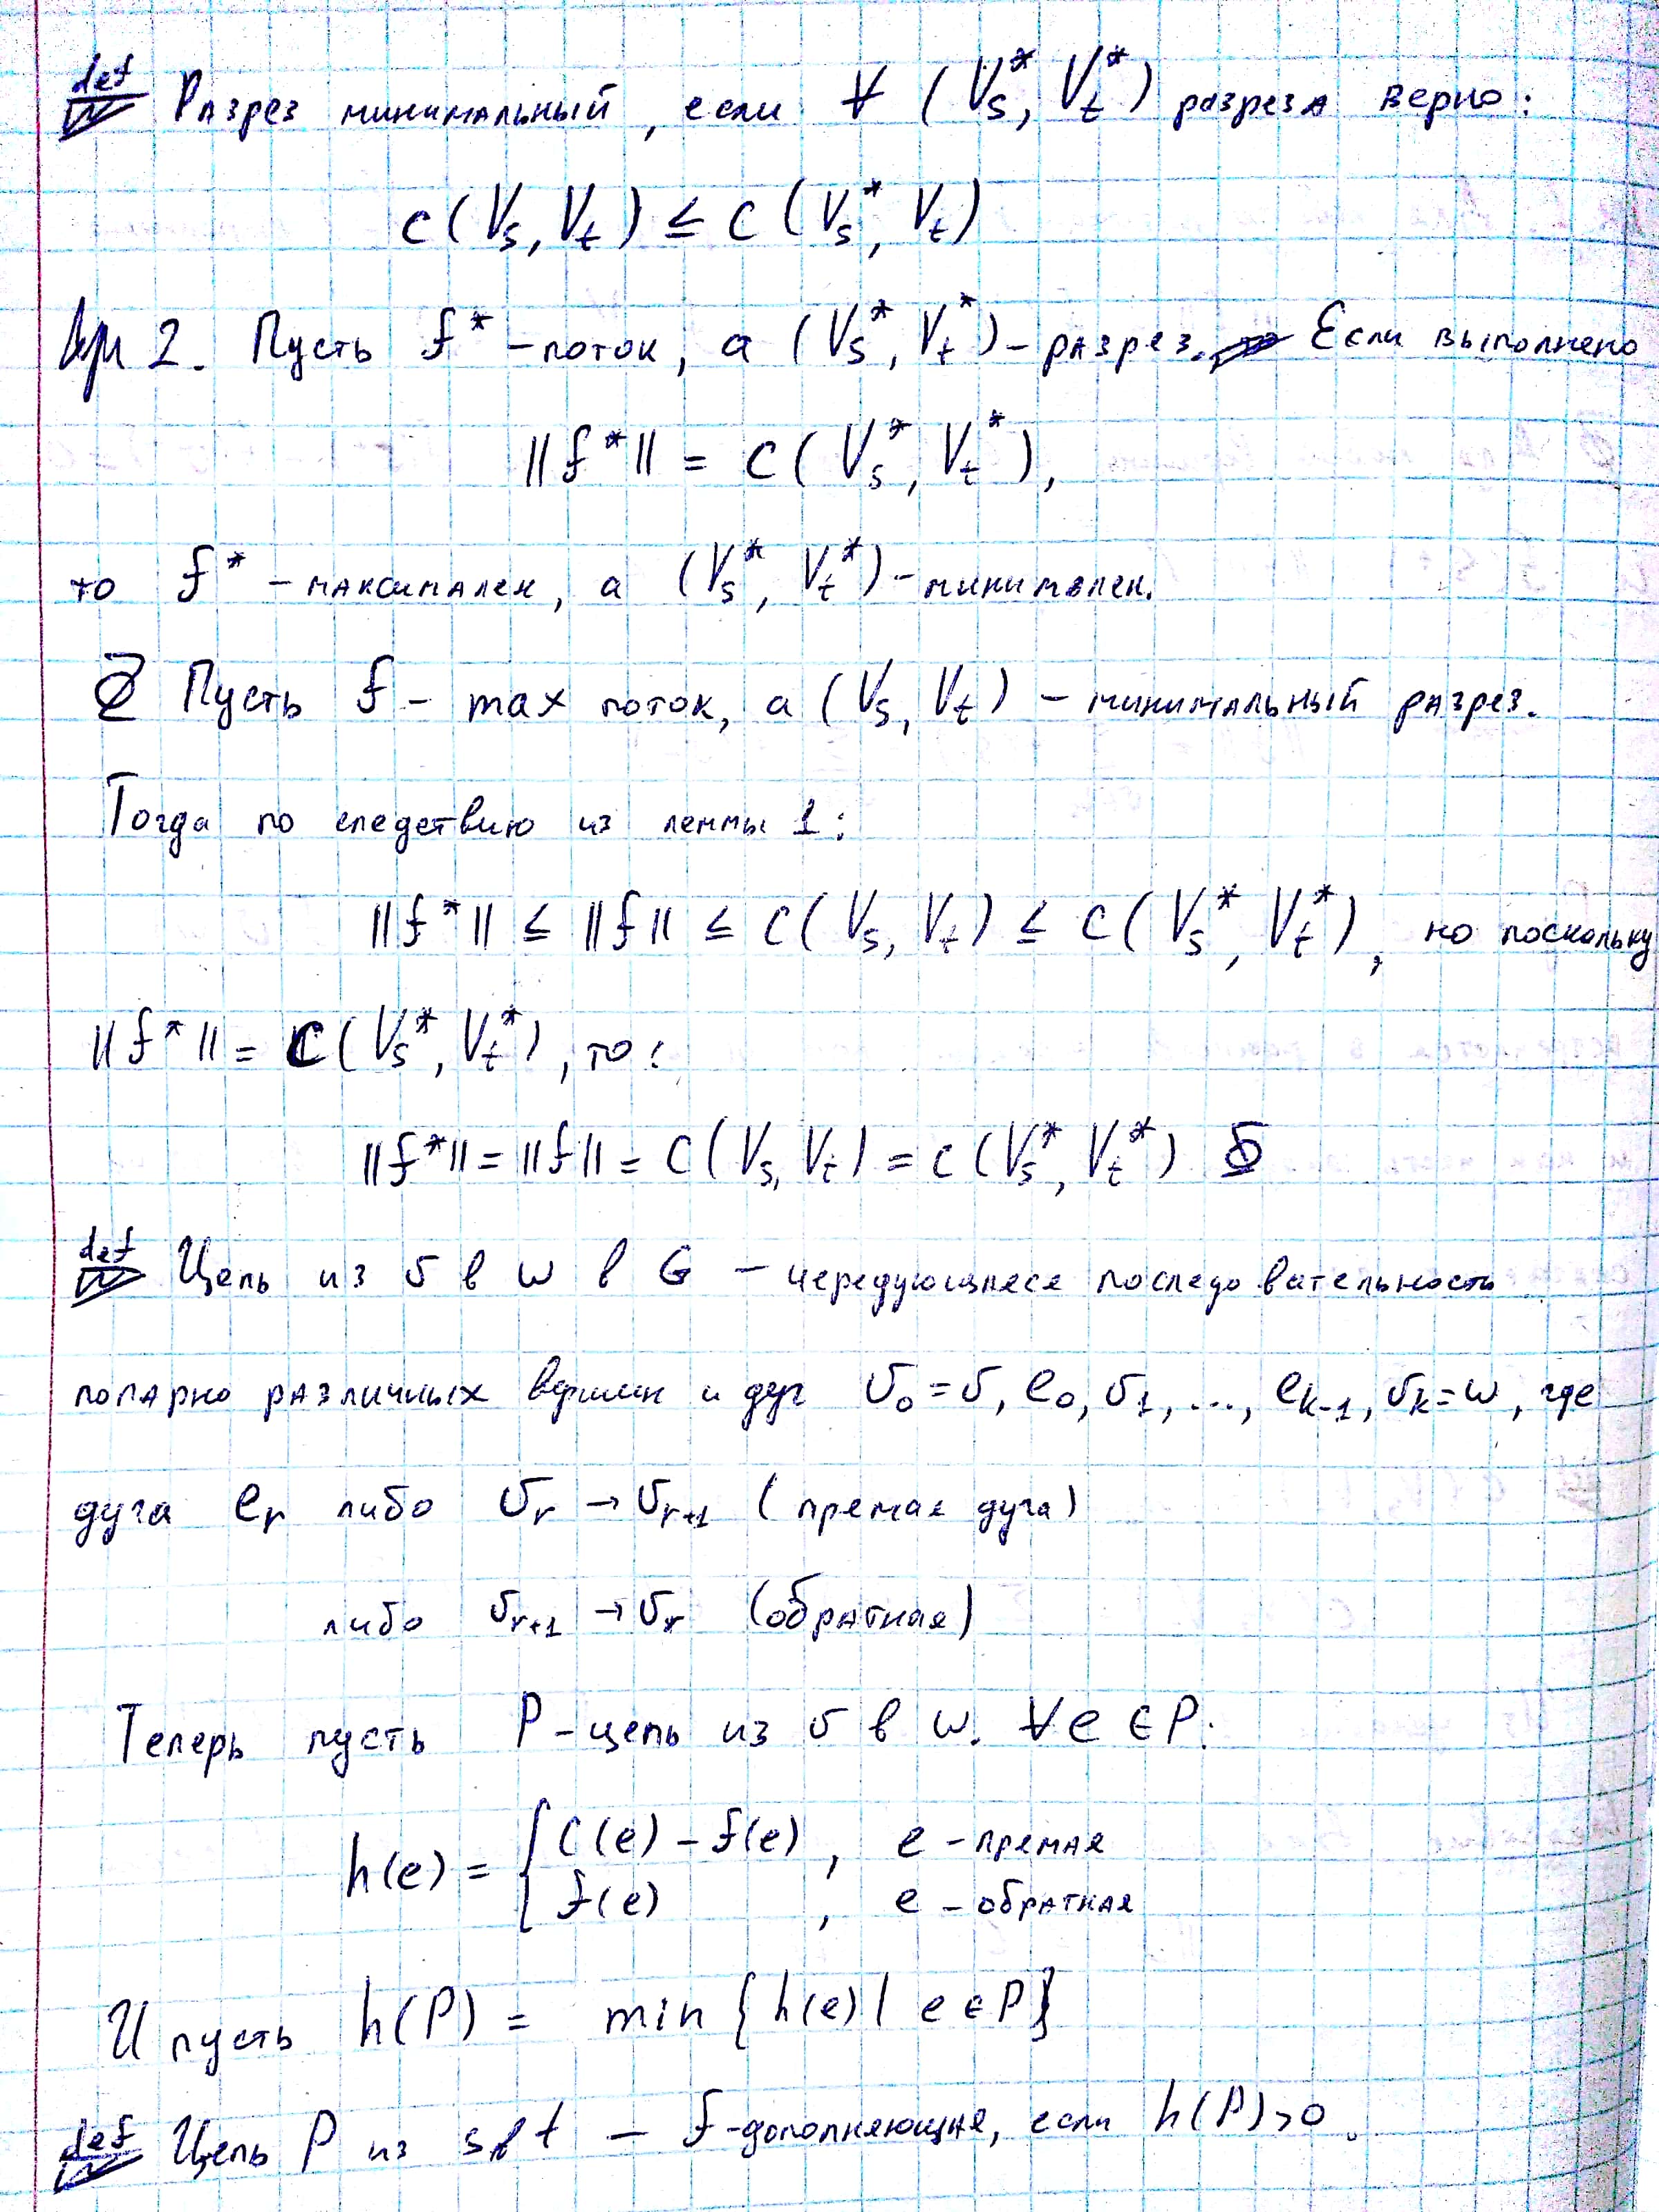 def Разрез минимальный, если ∀ (Vs*, Vt*) разреза верно:
c(Vs, Vt) ≤ c(Vs*, Vt)
2. Пусть f* – поток, а (Vs*, Vt*) – разрез. Если выполнено
||f*|| = c(Vs*, Vt*),
то f* – максимален, а (Vs*, Vt*) – минимален.
Пусть f – max поток, а (Vs, Vt) – минимальный разрез.
Тогда по следствию из леммы 1:
||f*|| ≤ ||f|| ≤ c(Vs, Vt) ≤ c(Vs*, Vt*), но поскольку
||f*|| = c(Vs*, Vt*), то:
||f*|| = ||f|| = c(Vs, Vt) = c(Vs*, Vt*)
def Цепь из v в w в G – чередующаяся последовательность
попарно различных вершин и дуг v0 = v, e0, v1, ..., ek-1, vk = w, где
дуга er либо vr → vr+1 (прямая дуга)
либо vr+1 → vr (обратная)
Теперь пусть P – цепь из v в w. ∀e ∈ P:
h(e) = { c(e) – f(e), e – прямая
f(e), e – обратная
И пусть h(P) = min {h(e) | e ∈ P}
def Цепь P из s в t – f-дополняющая, если h(P) > 0.